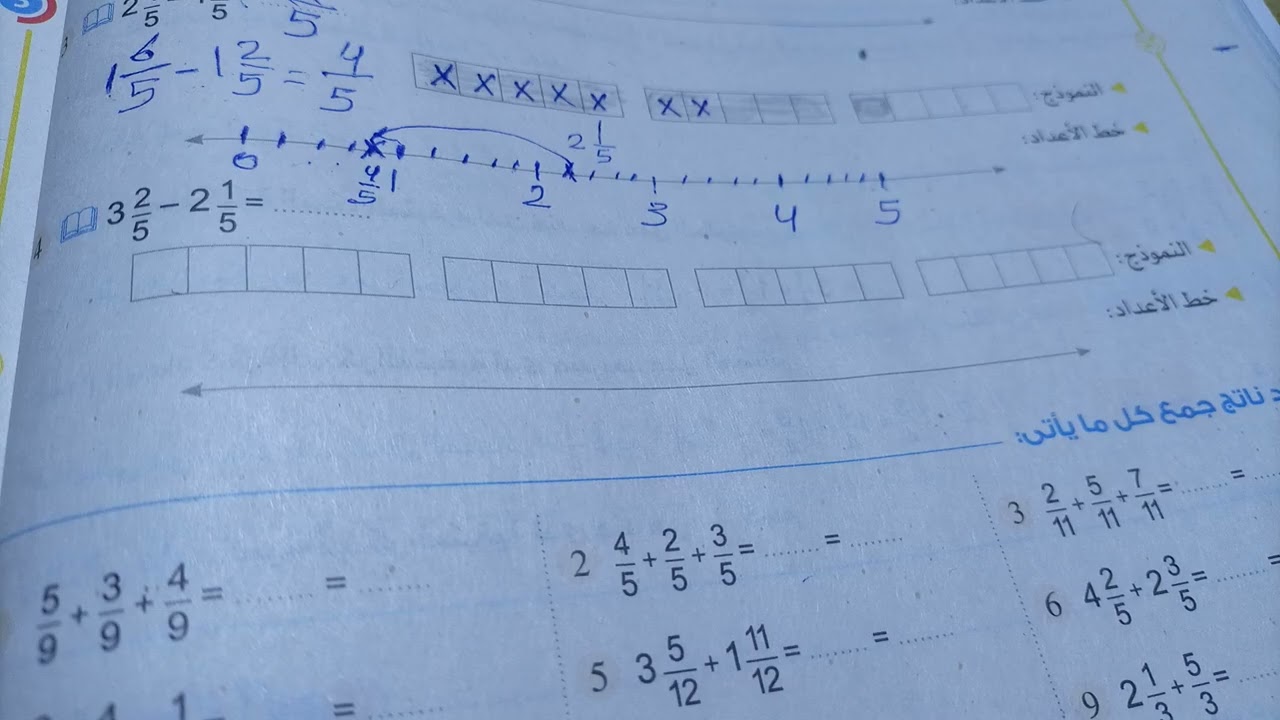 2 /5 /5 /5
1 6/5 - 1 2/5 = 4/5
x x x x x x x
النموذج:
خط الأعداد:
2 1/5
0 4/5 1 2 3 4 5
4 3 2/5 - 2 1/5 = ............
النموذج:
خط الأعداد:
ناتج جمع كل ما يأتى:
5/9 + 3/9 + 4/9 = ........ = ........
2 4/5 + 2/5 + 3/5 = ........ = ........
3 2/11 + 5/11 + 7/11 = ........ = ....
5 3 5/12 + 1 11/12 = ........ = ........
6 4 2/5 + 2 3/5 = ........ =
4 1 = ........
9 2 1/3 + 5/3 = ....